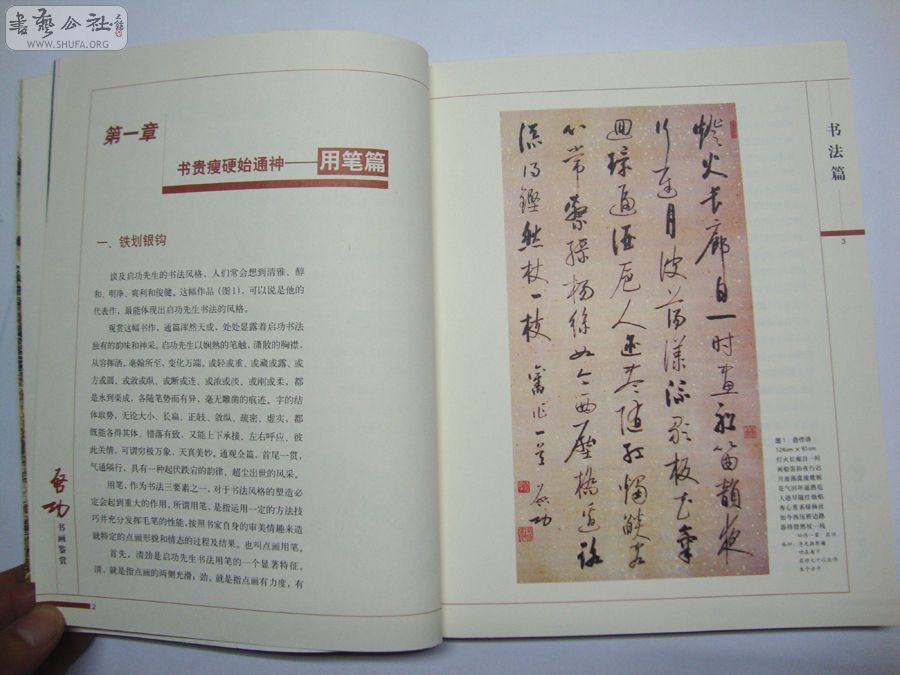 書藝公社
WWW.SHUFA.ORG
第一章
书贵瘦硬始通神——用笔篇
一、铁划银钩
谈及启功先生的书法风格，人们常会想到清雅、醇
和、明净、爽利和俊健。这幅作品（图1），可以说是他的
代表作，最能体现出启功先生书法的风格。
观赏这幅书作，通篇浑然天成，处处显露着启功书法
独有的韵味和神采。启功先生以娴熟的笔触，潇散的胸襟，
从容挥洒，毫翰所至，变化万端。或轻或重、或藏或露、或
方或圆、或敛或纵、或断或连、或浓或淡、或刚或柔，都
是水到渠成，各随笔势而有异，毫无雕凿的痕迹，字的结
体取势，无论大小、长扁、正欹、敛纵、疏密、虚实，都
既能各得其体、错落有致，又能上下承接、左右呼应、彼
此关情，可谓穷极万象，天真美妙。通观全篇，首尾一贯，
气通隔行，具有一种起伏跌宕的韵律，超尘出世的风采。
用笔，作为书法三要素之一，对于书法风格的塑造必
定会起到重大的作用，所谓用笔，是指运用一定的方法技
巧并充分发挥毛笔的性能，按照书家自身的审美情趣来造
就特定的点画形貌和情态的过程及结果。也叫点画用笔。
首先，清劲是启功先生书法用笔的一个显著特征。
清，就是指点画的两侧光滑；劲，就是指点画有力度，有
启功
书画鉴赏
2
书法篇
3
灯火长廊自一时
画船箫韵夜
行迟月波荡漾流歌板花气
回环逼酒卮人迹尽随红烛
心常系绿杨丝如今西压桥边路
添得铿然杖一枝
旧作一首
启功
图1 自作诗
124cm × 61cm
灯火长廊自一时
画船箫韵夜行迟
月波荡漾流歌板
花气回环逼酒卮
如今西压桥边路
添得铿然杖一枝